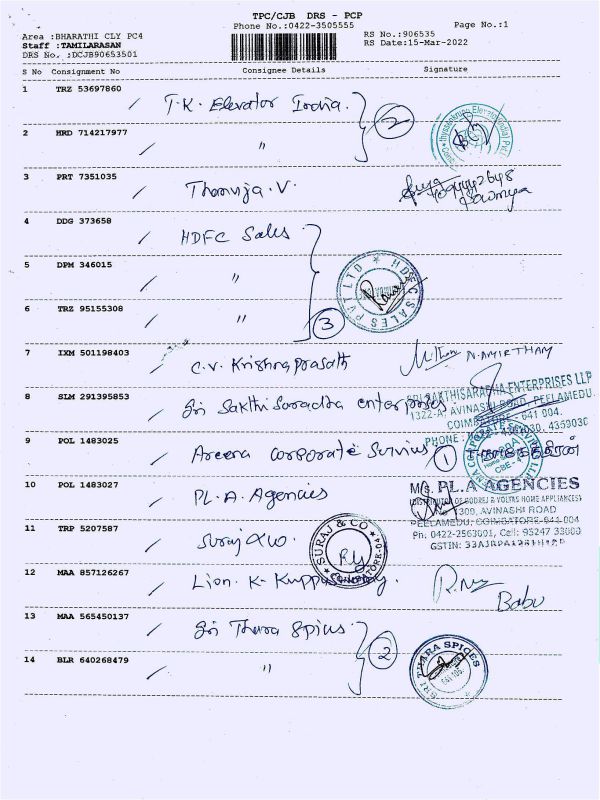 TPC/CJB DRS - PCP
Phone No.:0422-3505555
Page No.:1
Area :BHARATHI CLY PC4
Staff :TAMILARASAN
DRS No. :DCJB90653501
RS No.:906535
RS Date:15-Mar-2022
S No Consignment No Consignee Details Signature
1 TRZ 53697860 / T.K. Elevator India. 2
2 HRD 714217977 / "
3 PRT 7351035 / Thanuja.V. Sowmya
4 DDG 373658 / HDFC Sales
5 DPM 346015 / "
HDFC SALES PVT LTD
6 TRZ 95155308 / " 3
7 IXM 501198403 / C.V. Krishnaprasath N.AMIRTHAM
8 SLM 291395853 / Sri Sakthi Saradha enterprises
SRI SAKTHISARADHA ENTERPRISES LLP
1322-A, AVINASHI ROAD, PEELAMEDU,
COIMBATORE - 641 004.
9 POL 1483025 / Areena Corporate Services 1
10 POL 1483027 / PL.A. Agencies
M/s. PL.A AGENCIES
(DISTRIBUTOR OF GODREJ & VOLTAS HOME APPLIANCES)
No 1309, AVINASHI ROAD
PEELAMEDU, COIMBATORE-641 004
Ph: 0422-2563001, Cell: 95247 33000
11 TRP 5207587 / Suraj & Co.
SURAJ & CO
COIMBATORE-04
12 MAA 857126267 / Lion. K. Kuppusamy. Babu
13 MAA 565450137 / Sri Thara Spices. 2
14 BLR 640268479 / "
SRI THARA SPICES